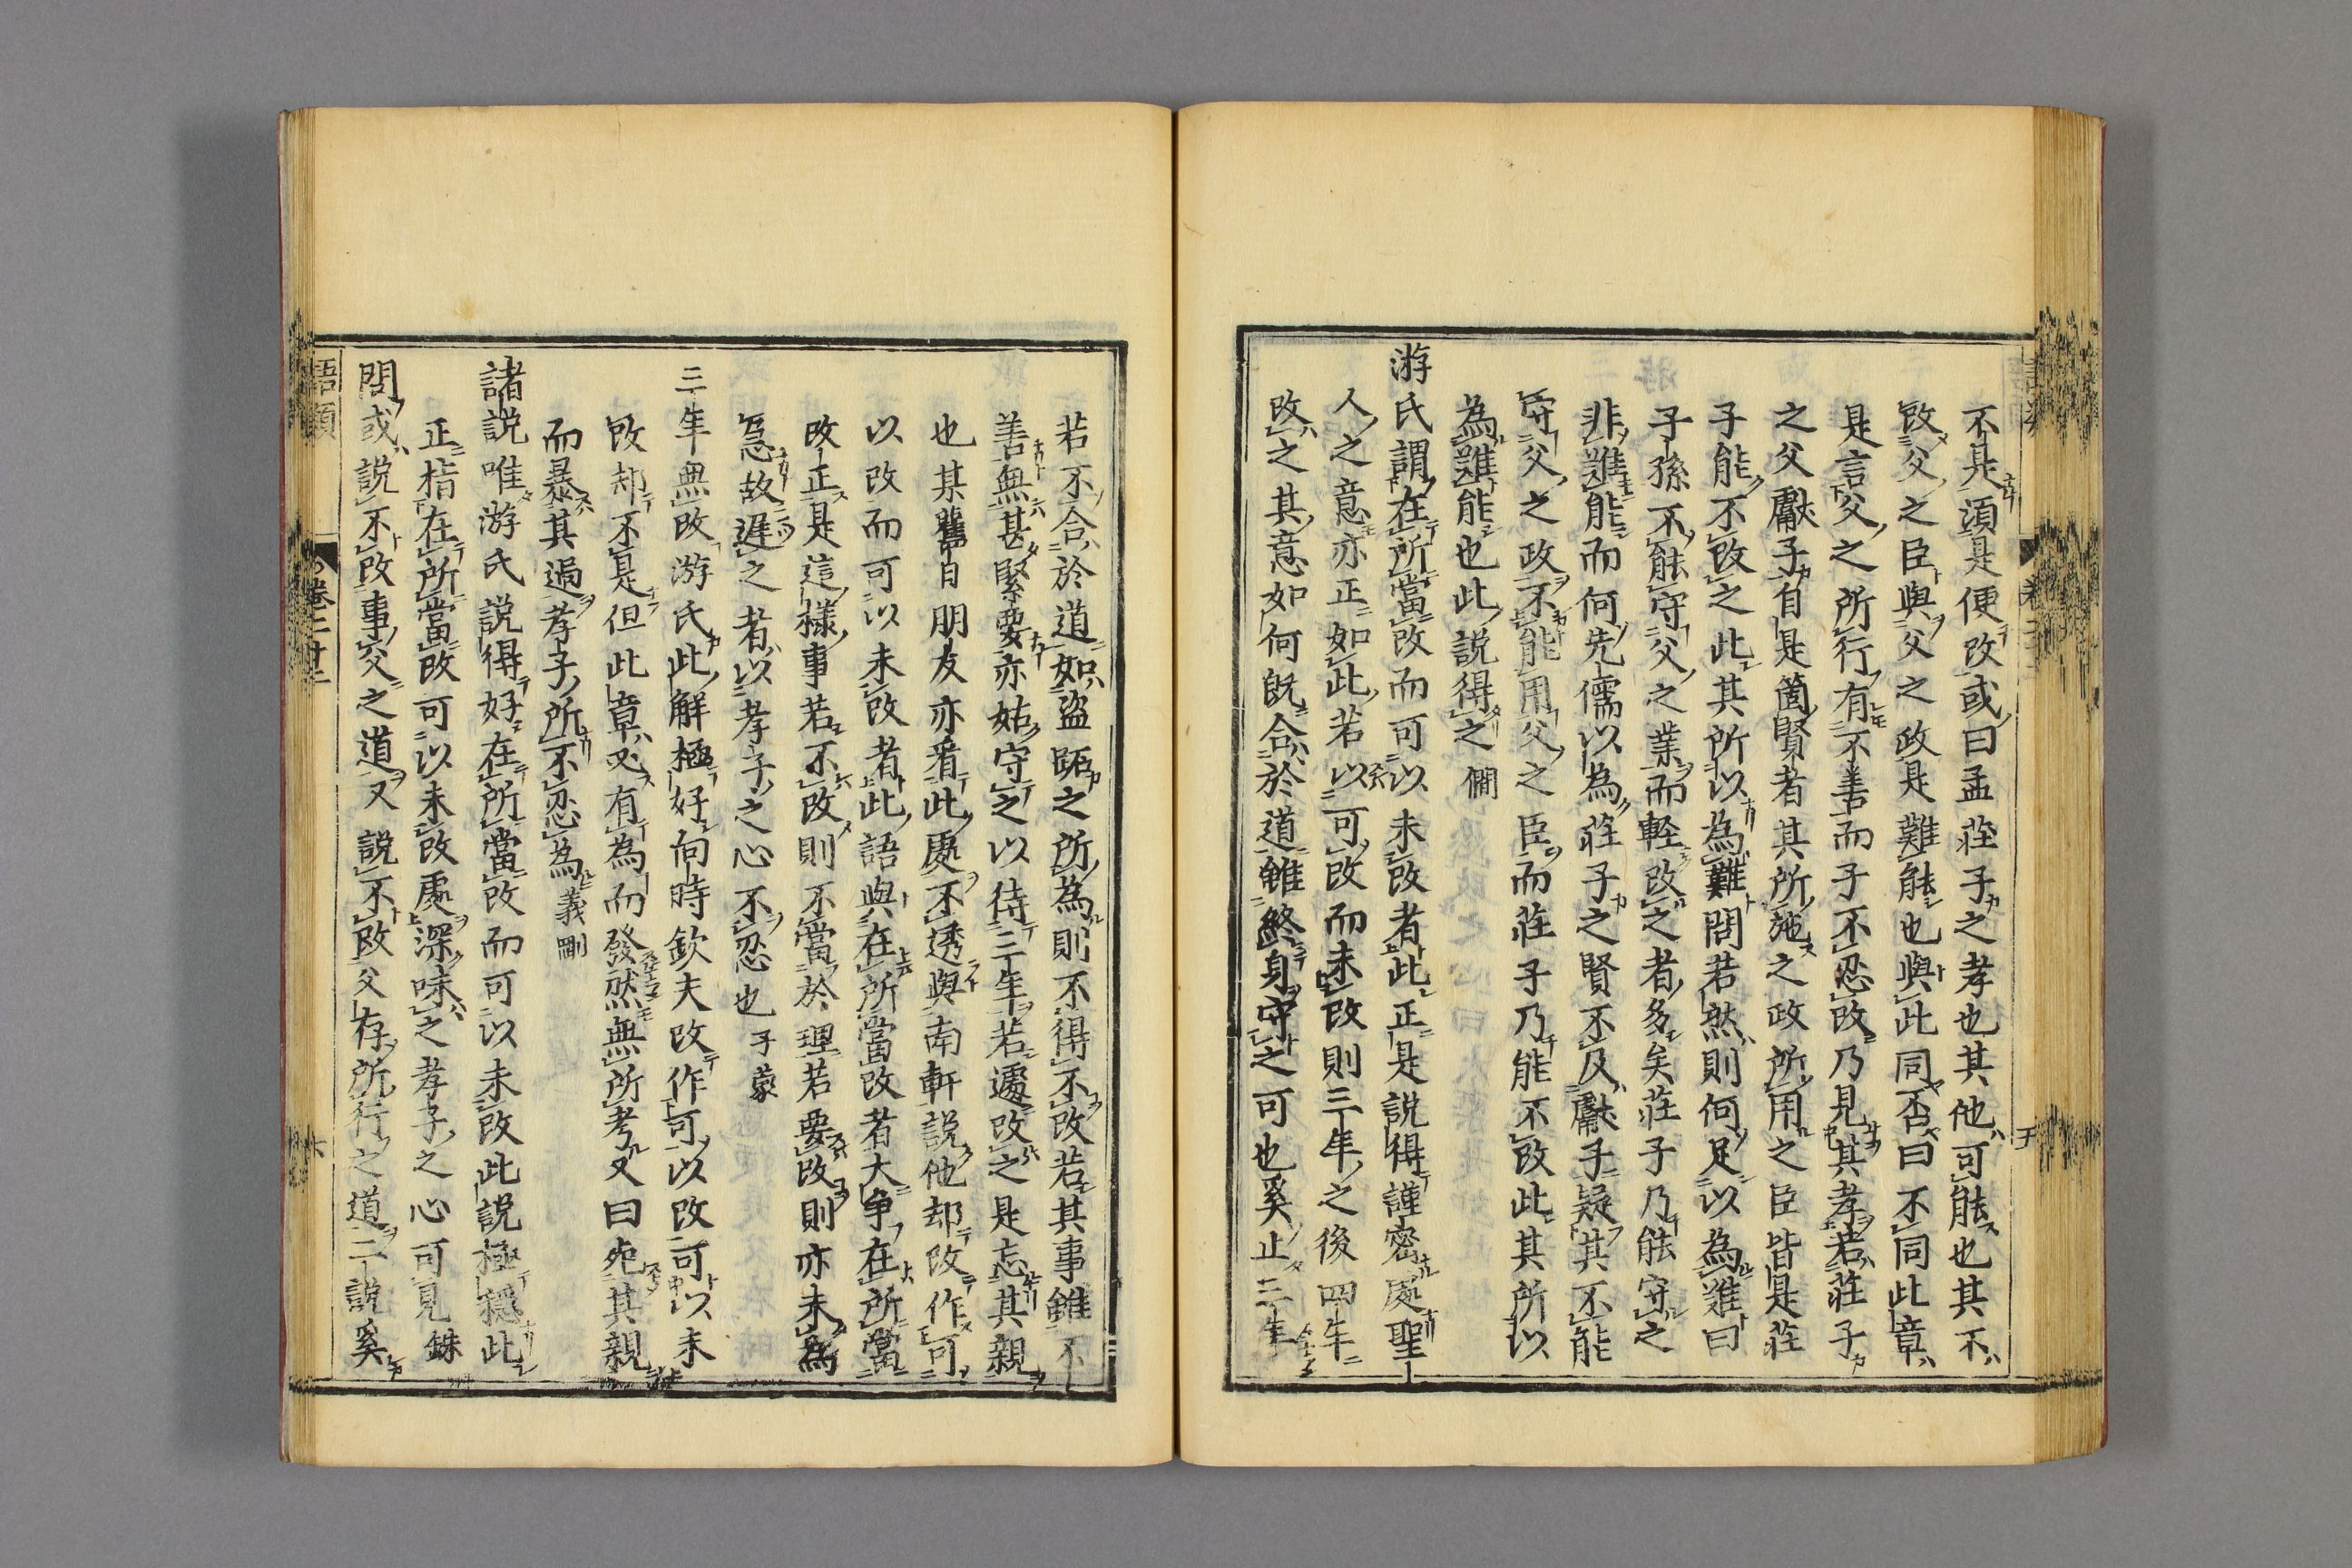 不是須是便改或曰孟莊子之孝也其他可能也其不
改父之臣與父之政是難能也與此同否曰不同此章
是言父之所行有不善而子不忍改乃見其孝若莊子
之父獻子自是箇賢者其所施之政所用之臣皆是莊
子能不改之此其所以為難問若然則何足以為難曰
子孫不能守父之業而軽改之者多矣莊子乃能守之
非難能而何先儒以為莊子之賢不及獻子疑其不能
守父之政不能用父之臣而莊子乃能不改此其所以
為難能也此說得之 僩
游氏謂在所當改而可以未改者此正是說得謹密處聖
人之意亦正如此若以可改而未改則三年之後四年
改之其意如何既合於道雖終身守之可也奚止三年
若不合於道如盜跖之所為則不得不改若其事雖不
善無甚緊要亦姑守之以待三年若遽改之是忘其親
也某舊日朋友亦看此處不透與南軒說他却改作可
以改而可以未改者此語與在所當改者大争在所當
改正是這樣事若不改則不當於理若要改則亦未為
急故遲之者以孝子之心不忍也 子蒙
三年無改游氏此解極好向時欽夫改作可以改可以未
改却不是但此章必有為而發然無所考又曰死其親
而暴其過孝子所不忍為 義剛
諸說唯游氏說得好在所當改而可以未改此說極穩此
正指在所當改可以未改處深味之孝子之心可見 銖
問或說不改事父之道又說不改父存所行之道二說奚
語類 卷二十二